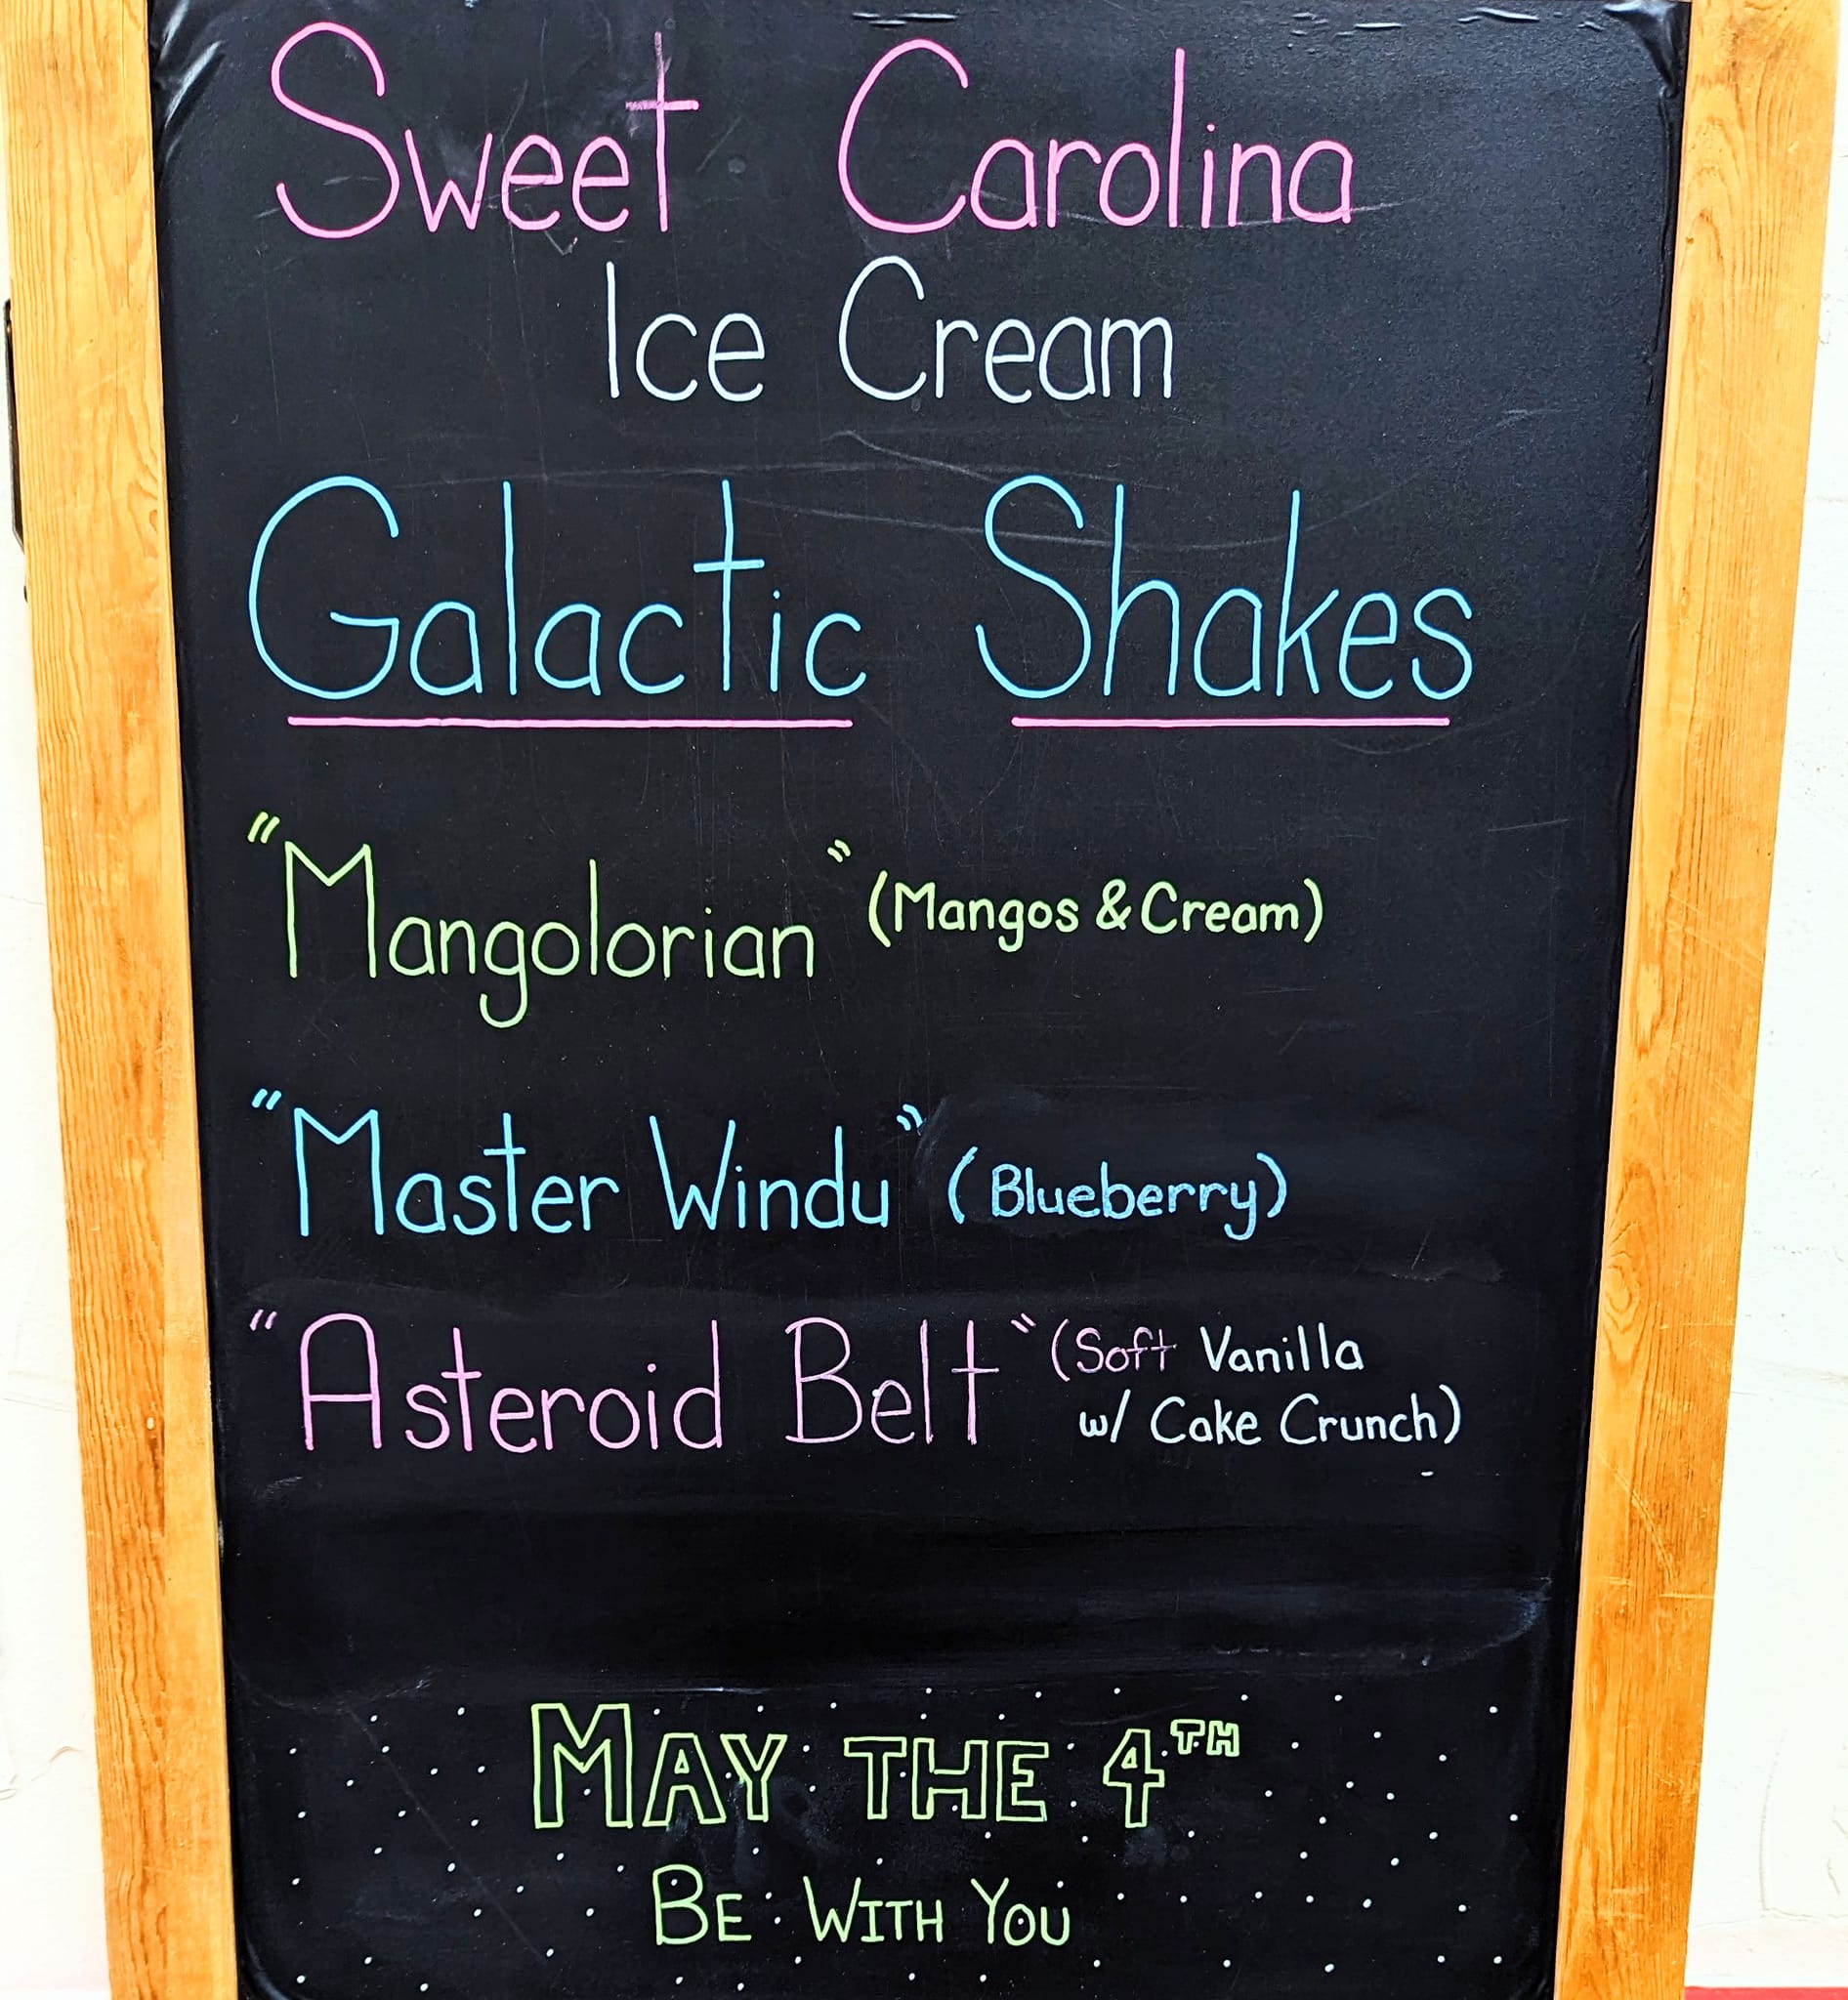 Sweet Carolina
Ice Cream
Galactic Shakes
"Mangolorian" (Mangos & Cream)
"Master Windu" (Blueberry)
"Asteroid Belt" (Soft Vanilla
w/ Cake Crunch)
MAY THE 4TH
BE WITH YOU